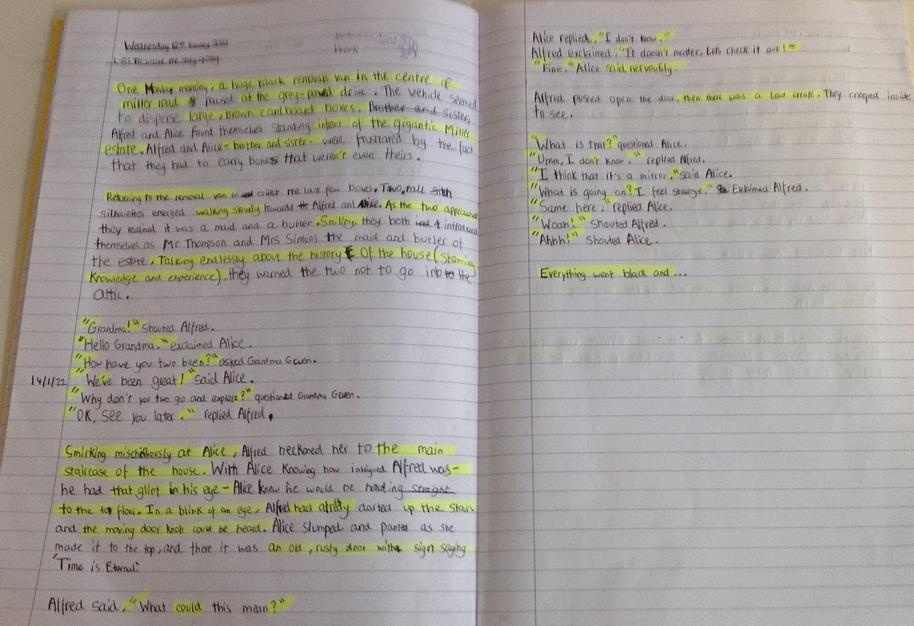 Wednesday 12th January 2022
LO: To write the story opening
One Monday morning, a huge black removals van in the centre of
miller road paused at the grey-paved drive. The vehicle seemed
to disperse large, brown cardboard boxes. Brother and sister,
Alfred and Alice found themselves standing infront of the gigantic Miller
estate. Alfred and Alice - brother and sister - were frustrated by the fact
that they had to carry boxes that weren't even theirs.
Returning to the removal van to collect the last few boxes. Two, tall
silhouettes emerged walking slowly towards Alfred and Alice. As the two approached
they realised it was a maid and a butler. Smiling, they both introduced
themselves as Mr Thompson and Mrs Simons the maid and butler of
the estate. Talking endlessly about the history of the house (sharing
knowledge and experience), they warned the two not to go into the
attic.
"Grandma!" Shouted Alfred.
"Hello Grandma." exclaimed Alice.
"How have you two been?" asked Grandma Gwen.
14/1/22 "We've been great!" said Alice.
"Why don't you two go and explore?" questioned Grandma Gwen.
"OK, see you later." replied Alfred.
Smirking mischeviously at Alice, Alfred beckoned her to the main
staircase of the house. With Alice knowing how intrigued Alfred was-
he had that glint in his eye - Alice knew he would be heading straight
to the top floor. In a blink of an eye, Alfred had already darted up the stairs
and the moving door knob could be heard. Alice slumped and panted as she
made it to the top, and there it was an old, rusty door with sign saying
"Time is Eternal."
Alfred said, "What could this mean?"
Alice replied, "I don't know."
Alfred exclaimed, "It doesn't matter, Lets check it out!"
"Fine." Alice said nervously.
Alfred pushed open the door, then there was a loud creak. They creeped inside
to see.
"What is that?" questioned Alice.
"Umm, I don't know." replied Alfred.
"I think that it's a mirror." said Alice.
"What is going on? I feel strange." Exclaimed Alfred.
"Same here." replied Alice.
"Woah!" Shouted Alfred.
"Ahhh!" Shouted Alice.
Everything went black and...